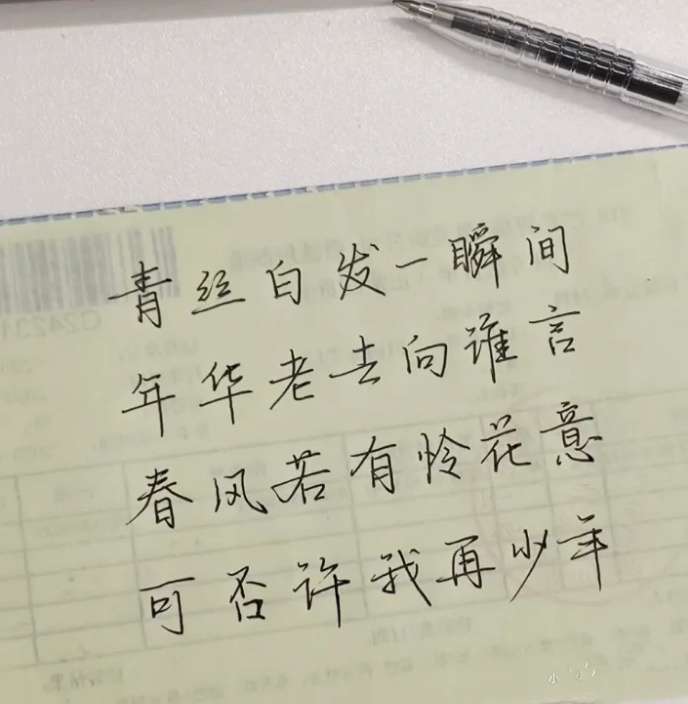 青丝白发一瞬间
年华老去向谁言
春风若有怜花意
可否许我再少年